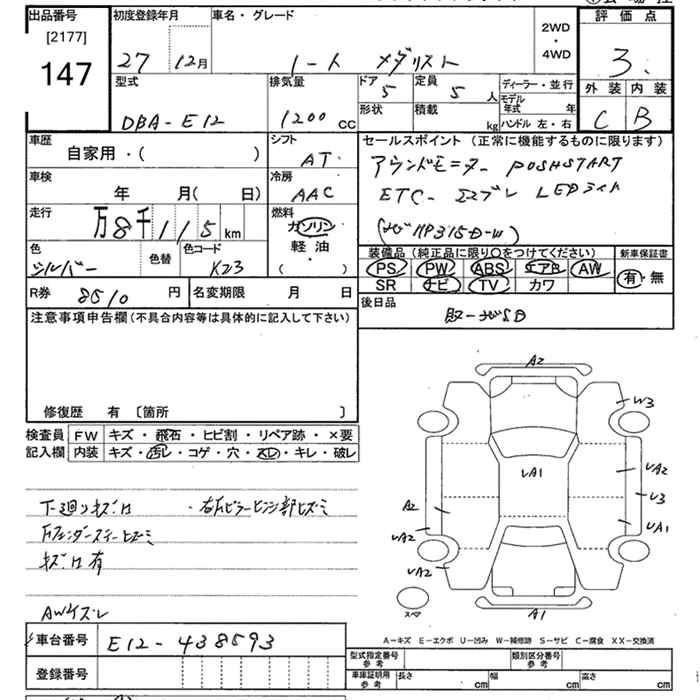 出品番号 初度登録年月 車名・グレード 2WD・4WD 評価点
[2177]
147 27 12月 ノート メダリスト 3.
型式 排気量 ドア 定員 ディーラー・並行 外装 内装
DBA-E12 1200 CC 5 5 人 モデル年式 年 C B
形状 積載 kg ハンドル 左・右
車歴 シフト セールスポイント (正常に機能するものに限ります)
自家用・( ) AT アラウンドモニター PUSHSTART
車検 冷房 ETC エマブレ LEDライト
年 月( 日) AAC (ナビ HP315D-W)
走行 燃料
万8千115km ガソリン
軽油・( )
色 色替 色コード
シルバー K23
装備品 (純正品に限り○をつけてください) 新車保証書
PS PW ABS エアB AW 有・無
SR ナビ TV カワ
R券 8510 円 名変期限 月 日 後日品
取・ナビSD
注意事項申告欄 (不具合内容等は具体的に記入して下さい)
修復歴 有 〔箇所 〕
検査員 FW キズ・飛石・ヒビ割・リペア跡・×要
記入欄 内装 キズ・汚レ・コゲ・穴・スレ・キレ・破レ
下廻りキズ
キズ 有
AWキズ
A2
W3
UA2
UA1
U3
A2
UA1
UA2
UA2
A1
スペア
A-キズ E-エクボ U-凹み W-補修跡 S-サビ C-腐食 XX-交換済
車台番号 E12-438593
登録番号
型式指定番号 参考 類別区分番号 参考
車庫証明用 参考 長さ cm 幅 cm 高さ cm